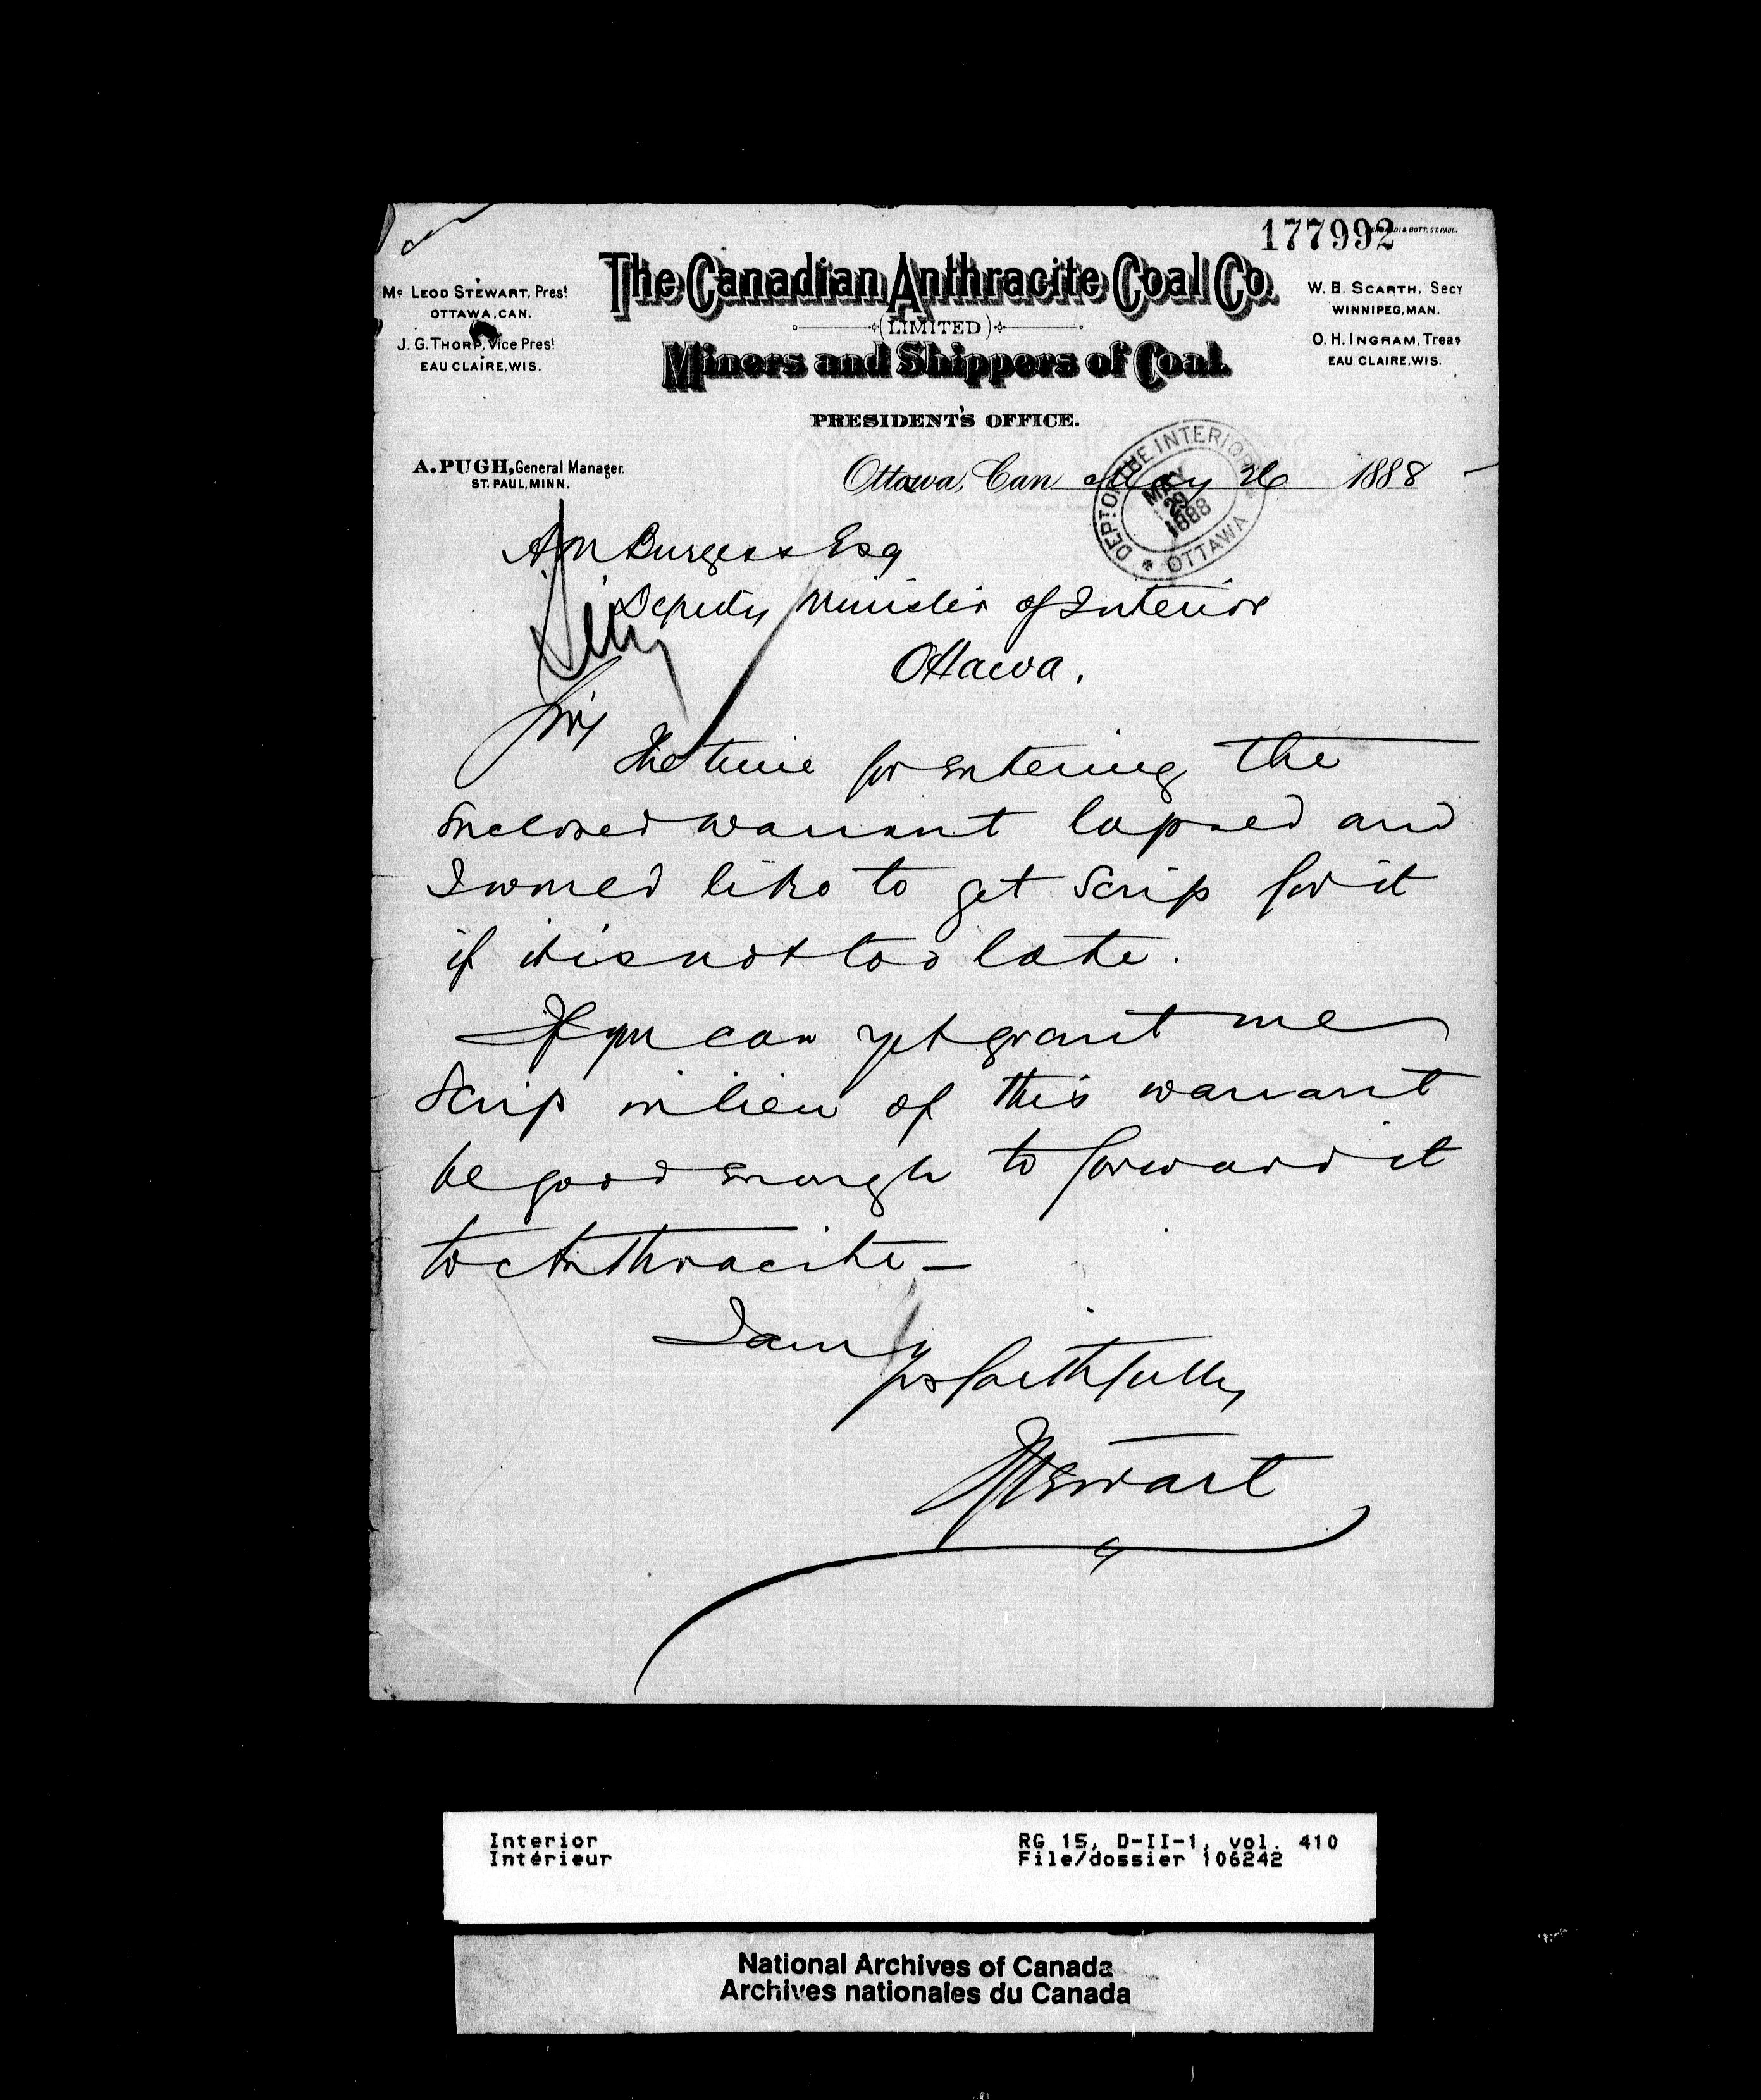 177992
The Canadian Anthracite Coal Co.
(LIMITED)
Miners and Shippers of Coal.
PRESIDENT'S OFFICE.
Mc LEOD STEWART, Prest
OTTAWA, CAN.
J. G. THORP, Vice Prest
EAU CLAIRE, WIS.
W. B. SCARTH, Secy
WINNIPEG, MAN.
O. H. INGRAM, Treas
EAU CLAIRE, WIS.
A. PUGH, General Manager.
ST. PAUL, MINN.
Ottawa, Can. May 26 1888
DEPT. OF THE INTERIOR
MAY
29
1888
* OTTAWA *
A M Burgess Esq
Deputy Minister of Interior
Ottawa.
Sir
The time for entering the
enclosed warrant lapsed and
I would like to get Scrip for it
if it is not too late.
If you can yet grant me
Scrip in lieu of this warrant
be good enough to forward it
to Anthracite —
I am
Yrs faithfully
Stewart
Interior
Intérieur
RG 15, D-II-1, vol. 410
File/dossier 106242
National Archives of Canada
Archives nationales du Canada